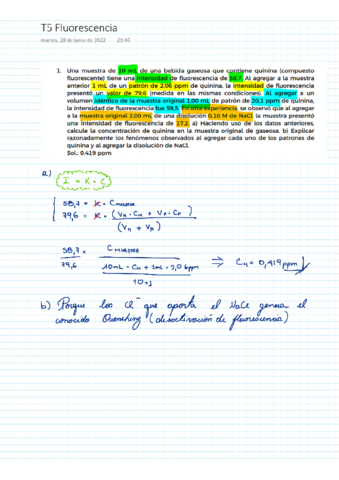 T5 Fluorescencia
martes, 28 de junio de 2022 21:46
1. Una muestra de 10 mL de una bebida gaseosa que contiene quinina (compuesto
fluorescente) tiene una intensidad de fluorescencia de 58,7. Al agregar a la muestra
anterior 1 mL de un patrón de 2.06 ppm de quinina, la intensidad de fluorescencia
presentó un valor de 79,6 (medida en las mismas condiciones). Al agregar a un
volumen idéntico de la muestra original 1.00 mL de patrón de 20,1 ppm de quinina,
la intensidad de fluorescencia fue 59,5. En otra experiencia, se observó que al agregar
a la muestra original 2.00 mL de una disolución 0,10 M de NaCl, la muestra presentó
una intensidad de fluorescencia de 17,2. a) Haciendo uso de los datos anteriores,
calcule la concentración de quinina en la muestra original de gaseosa. b) Explicar
razonadamente los fenómenos observados al agregar cada uno de los patrones de
quinina y al agregar la disolución de NaCl.
Sol.: 0.419 ppm
a)
I = K · C
58,7 = K · C MUESTRA
79,6 = K · (VM · CM + VP · CP)
(VM + VP)
58,7 = C MUESTRA
79,6 10mL · CM + 1mL · 2,06ppm
10+1
⇒ CM = 0,419 ppm
b) Porque los Cl⁻ que aporta el NaCl genera el
conocido Quenching (desactivación de fluorescencia)